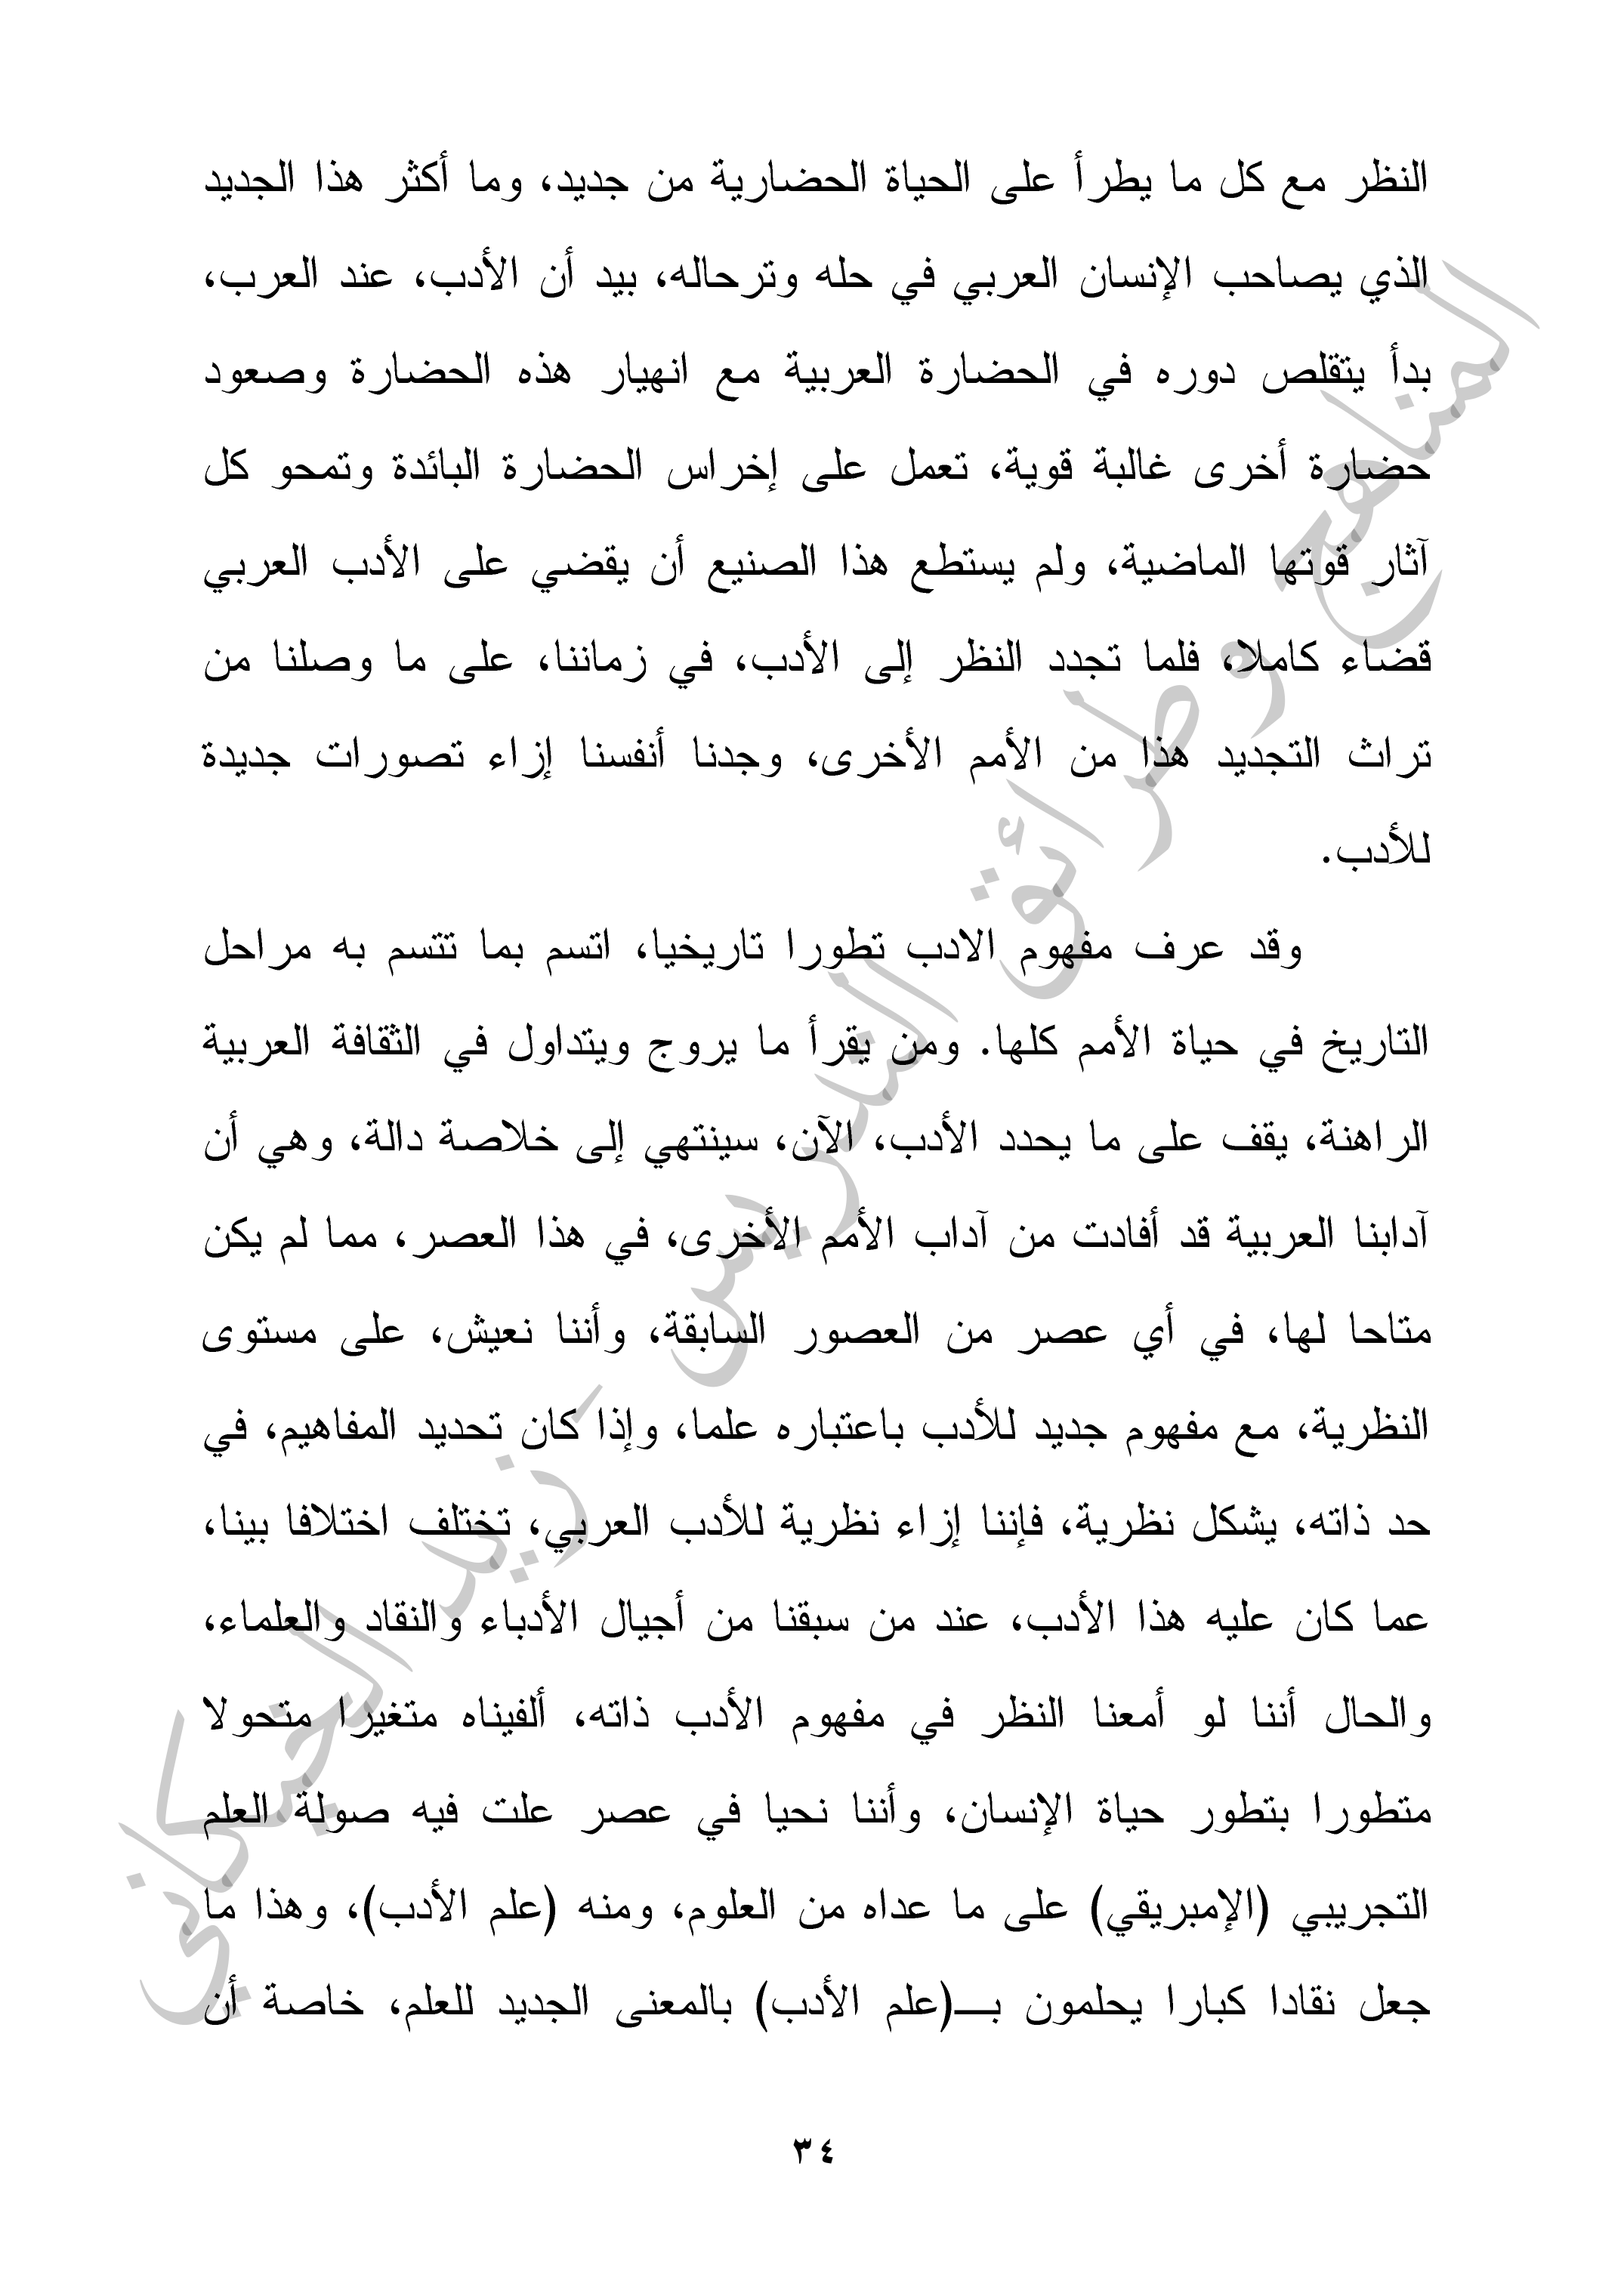 النظر مع كل ما يطرأ على الحياة الحضارية من جديد، وما أكثر هذا الجديد
الذي يصاحب الإنسان العربي في حله وترحاله، بيد أن الأدب، عند العرب،
بدأ يتقلص دوره في الحضارة العربية مع انهيار هذه الحضارة وصعود
حضارة أخرى غالبة قوية، تعمل على إخراس الحضارة البائدة وتمحو كل
آثار قوتها الماضية، ولم يستطع هذا الصنيع أن يقضي على الأدب العربي
قضاء كاملا، فلما تجدد النظر إلى الأدب، في زماننا، على ما وصلنا من
تراث التجديد هذا من الأمم الأخرى، وجدنا أنفسنا إزاء تصورات جديدة
للأدب.
وقد عرف مفهوم الادب تطورا تاريخيا، اتسم بما تتسم به مراحل
التاريخ في حياة الأمم كلها. ومن يقرأ ما يروج ويتداول في الثقافة العربية
الراهنة، يقف على ما يحدد الأدب، الآن، سينتهي إلى خلاصة دالة، وهي أن
آدابنا العربية قد أفادت من آداب الأمم الأخرى، في هذا العصر، مما لم يكن
متاحا لها، في أي عصر من العصور السابقة، وأننا نعيش، على مستوى
النظرية، مع مفهوم جديد للأدب باعتباره علما، وإذا كان تحديد المفاهيم، في
حد ذاته، يشكل نظرية، فإننا إزاء نظرية للأدب العربي، تختلف اختلافا بينا،
عما كان عليه هذا الأدب، عند من سبقنا من أجيال الأدباء والنقاد والعلماء،
والحال أننا لو أمعنا النظر في مفهوم الأدب ذاته، ألفيناه متغيرا متحولا
متطورا بتطور حياة الإنسان، وأننا نحيا في عصر علت فيه صولة العلم
التجريبي (الإمبريقي) على ما عداه من العلوم، ومنه (علم الأدب)، وهذا ما
جعل نقادا كبارا يحلمون بـــ(علم الأدب) بالمعنى الجديد للعلم، خاصة أن
٣٤
المناهج وطرائق التدريس - زيد الخيكاني